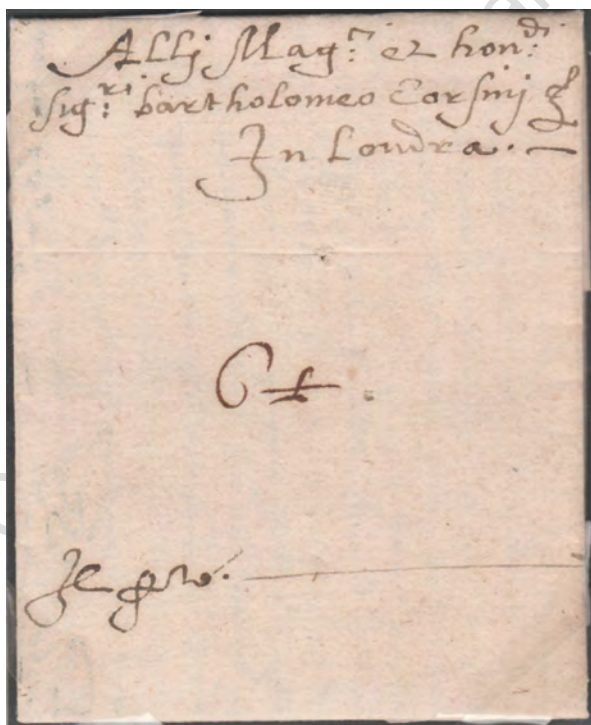 Allj Mag:ci et hon:di
sig:ri bartholomeo Corsinj
In Londra.
6
Il